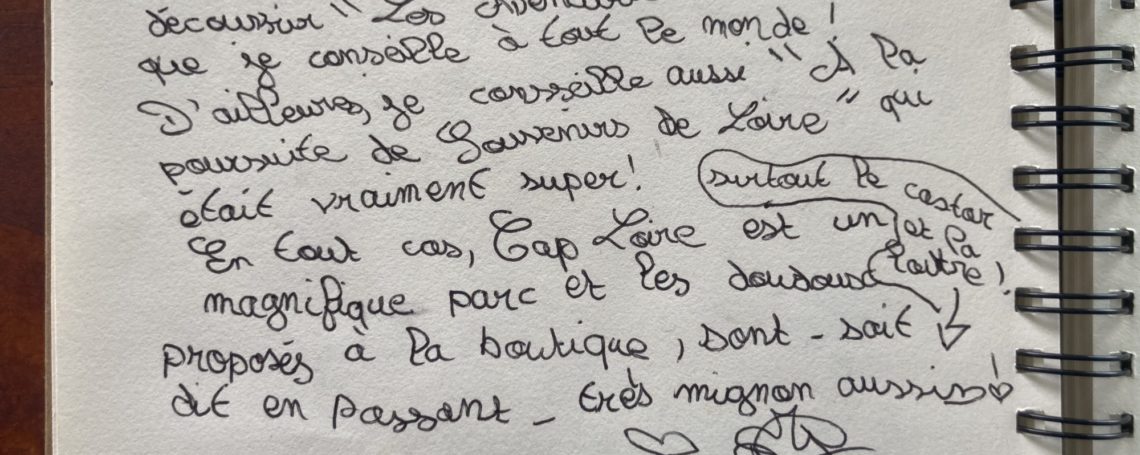 découvrir "Les
que je conseille à tout le monde !
D'ailleurs, je conseille aussi "À la
poursuite de Souvenirs de Loire" qui
était vraiment super !
surtout le castor
et la
loutre !
En tout cas, Cap Loire est un
magnifique parc et les doudous
proposés à la boutique, sont - soit
dit en passant - très mignon aussi !